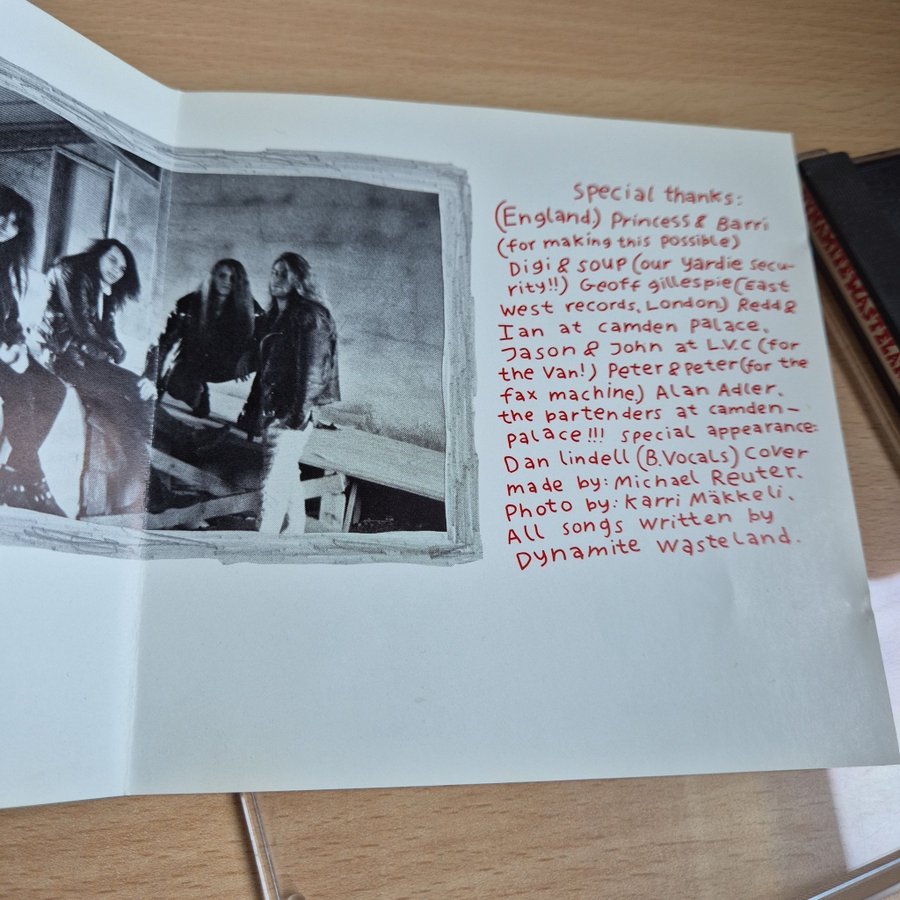 Special thanks:
(England.) Princess & Barri
(for making this possible)
Digi & soup (our yardie secu-
rity!!) Geoff gillespie (East
West records, London) Redd &
Ian at camden palace.
Jason & John at L.V.C (for
the Van!) Peter & Peter (for the
fax machine) Alan Adler.
the bartenders at camden-
palace!!! special appearance:
Dan lindell (B.Vocals) Cover
made by: Michael Reuter.
Photo by: Karri Mäkkeli.
All songs written by
Dynamite Wasteland.
DYNAMITE WASTELAND